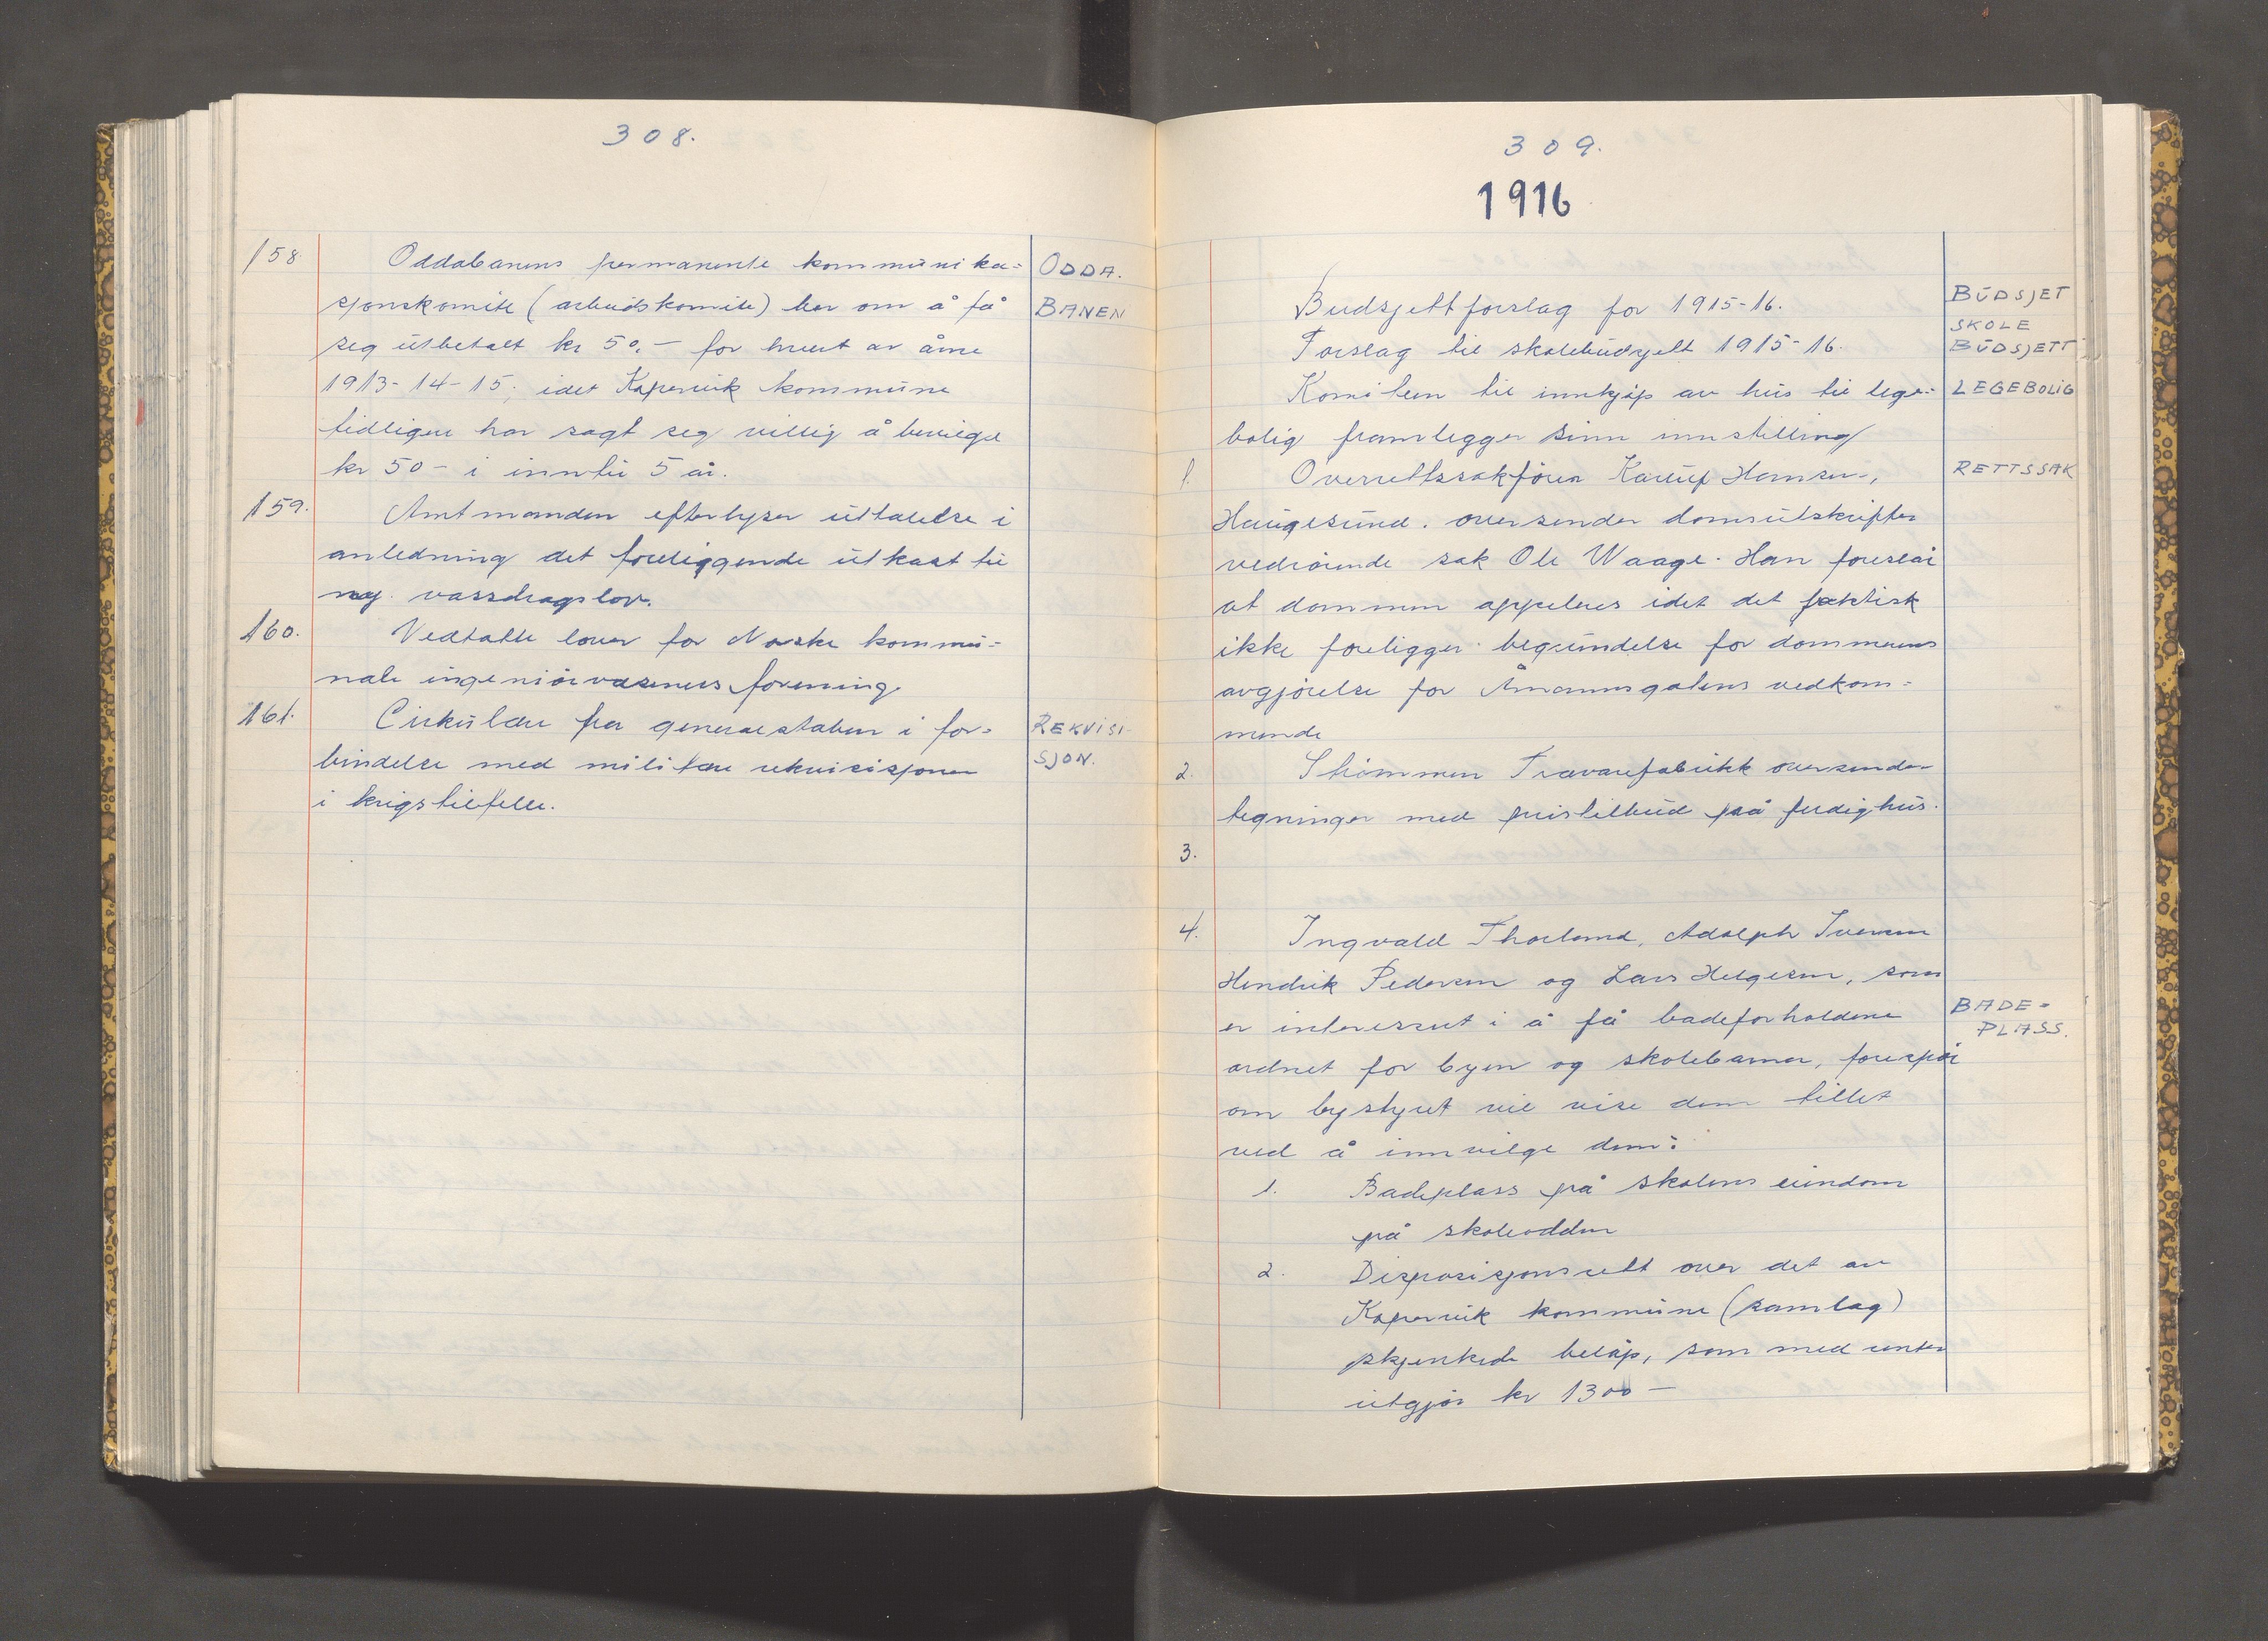 308.
158. Oddabanens permanente kommunika=
sjonskomite (arbeidskomite) ber om å få
seg utbetalt kr 50.- for hvert av årne
1913-14-15, idet Kopervik kommune
tidligere har sagt seg villig å bevilge
kr 50- i inntil 5 år.
ODDA.
BANEN
159. Amtmanden efterlyser uttalelse i
anledning det foreliggende utkast til
ny vassdragslov.
160. Vedtatte lover for Norske kommu=
nale ingeniørvæseners forening
161. Cirkulære fra generalstaben i for=
bindelse med militære rekvisisjoner
i krigstilfelle.
REKVISI-
SJON.
309.
1916
Budsjettforslag for 1915-16.
BUDSJET
Forslag til skolebudsjett 1915-16.
SKOLE
BUDSJETT
Komiteen til innkjøp av hus til lege=
bolig framlegger sinn innstilling
LEGEBOLIG
1. Overrettssakfører Karup Hansen,
Haugesund. oversender domsutskrifter
vedrørende sak Ole Waage. Han foreslår
at dommen appeleres idet det faktisk
ikke foreligger begrundelse for dommerens
avgjørelse for Åmannsgatens vedkom=
mende
RETTSSAK
2. Strømmen Trævarefabrikk oversender
tegninger med pristilbud på ferdighus.
3.
4. Ingvald Thorland, Adolph Iversen
Hendrik Pedersen og Lars Helgesen, som
er interessert i å få badeforholdene
ordnet for byen og skolebarna, forespør
om bystyret vil vise dem tillit
ved å innvilge dem:
BADE-
PLASS.
1. Badeplass på skolens eiendom
på skoleodden
2. Disposisjonsrett over det av
Kopervik kommune (samlag)
skjenkede beløp, som med renter
utgjør kr 1300-